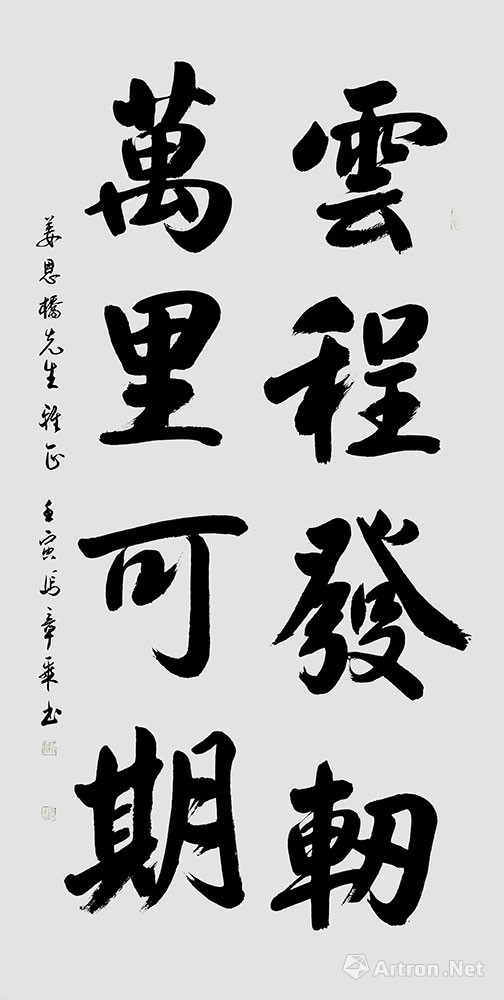 雲程發軔
萬里可期
姜恩橋先生雅正 壬寅馮章乘书
Artron.Net